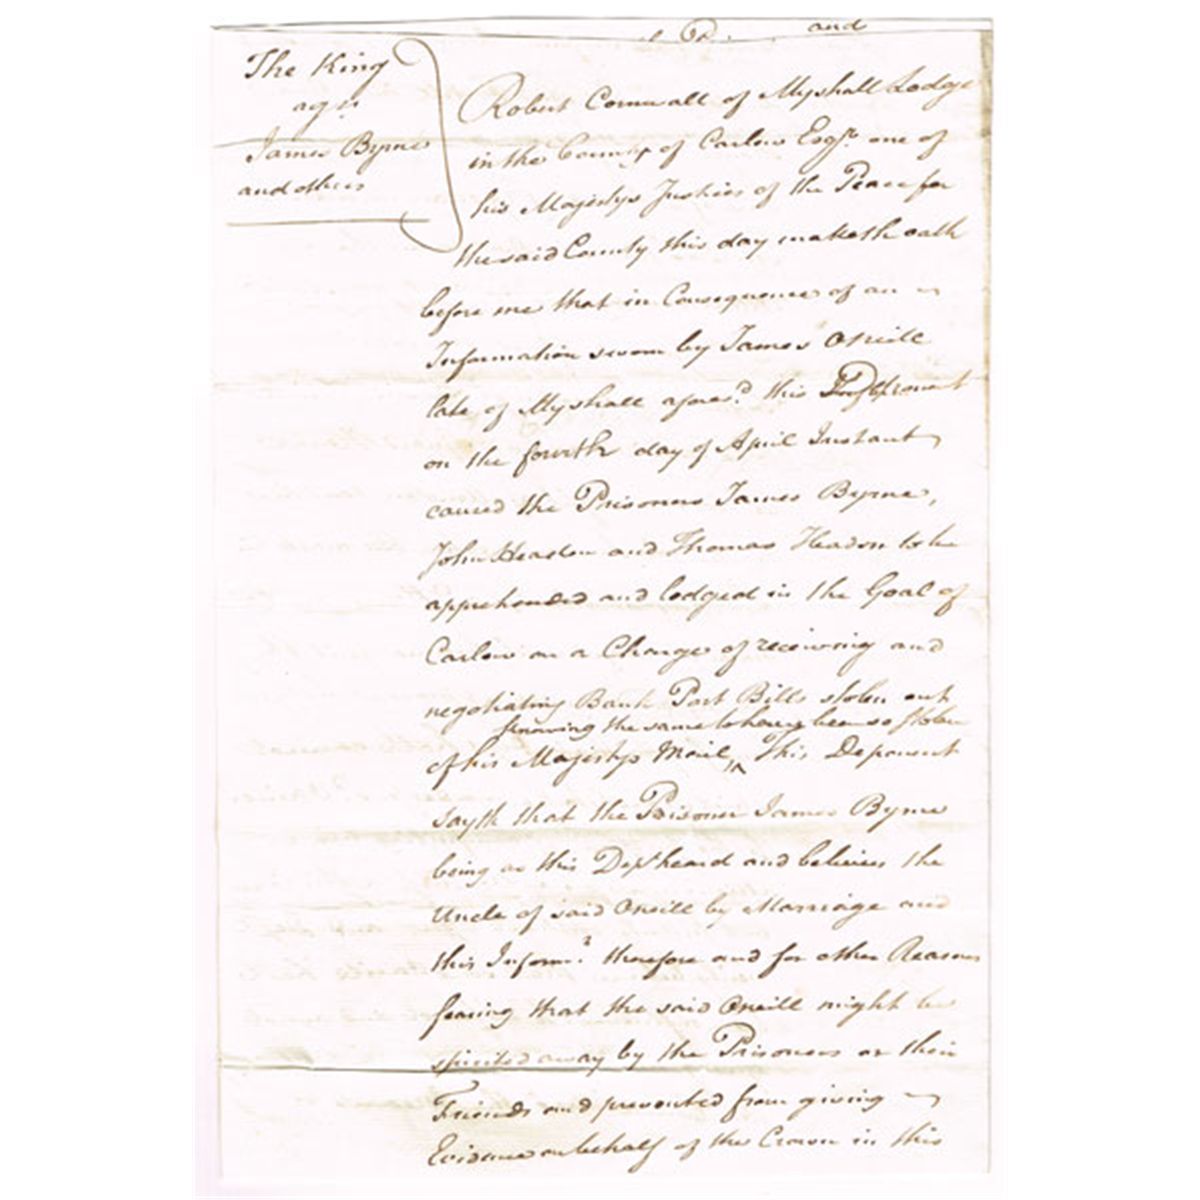 and
The King
agst
James Byrne
and others
Robert Cornwall of Myshall Lodge
in the County of Carlow Esqr. one of
his Majestys Justices of the Peace for
the said County this day maketh oath
before me that in Consequence of an
Information sworn by James ONeill
late of Myshall afores.d this Deponent
on the fourth day of April Instant
caused the Prisoners James Byrne,
John Headon and Thomas Headon to be
apprehended and lodged in the Goal of
Carlow on a Charge of receiving and
negotiating Bank Post Bills stolen out
knowing the same to have been so stolen
of his Majestys Mail, This Deponent
sayth that the Prisoner James Byrne
being as this Dept heard and believes the
Uncle of said ONeill by Marriage and
this Inform.t therefore and for other Reasons
fearing that the said ONeill might be
spirited away by the Prisoners or their
Friends and prevented from giving
Evidence on behalf of the Crown in this